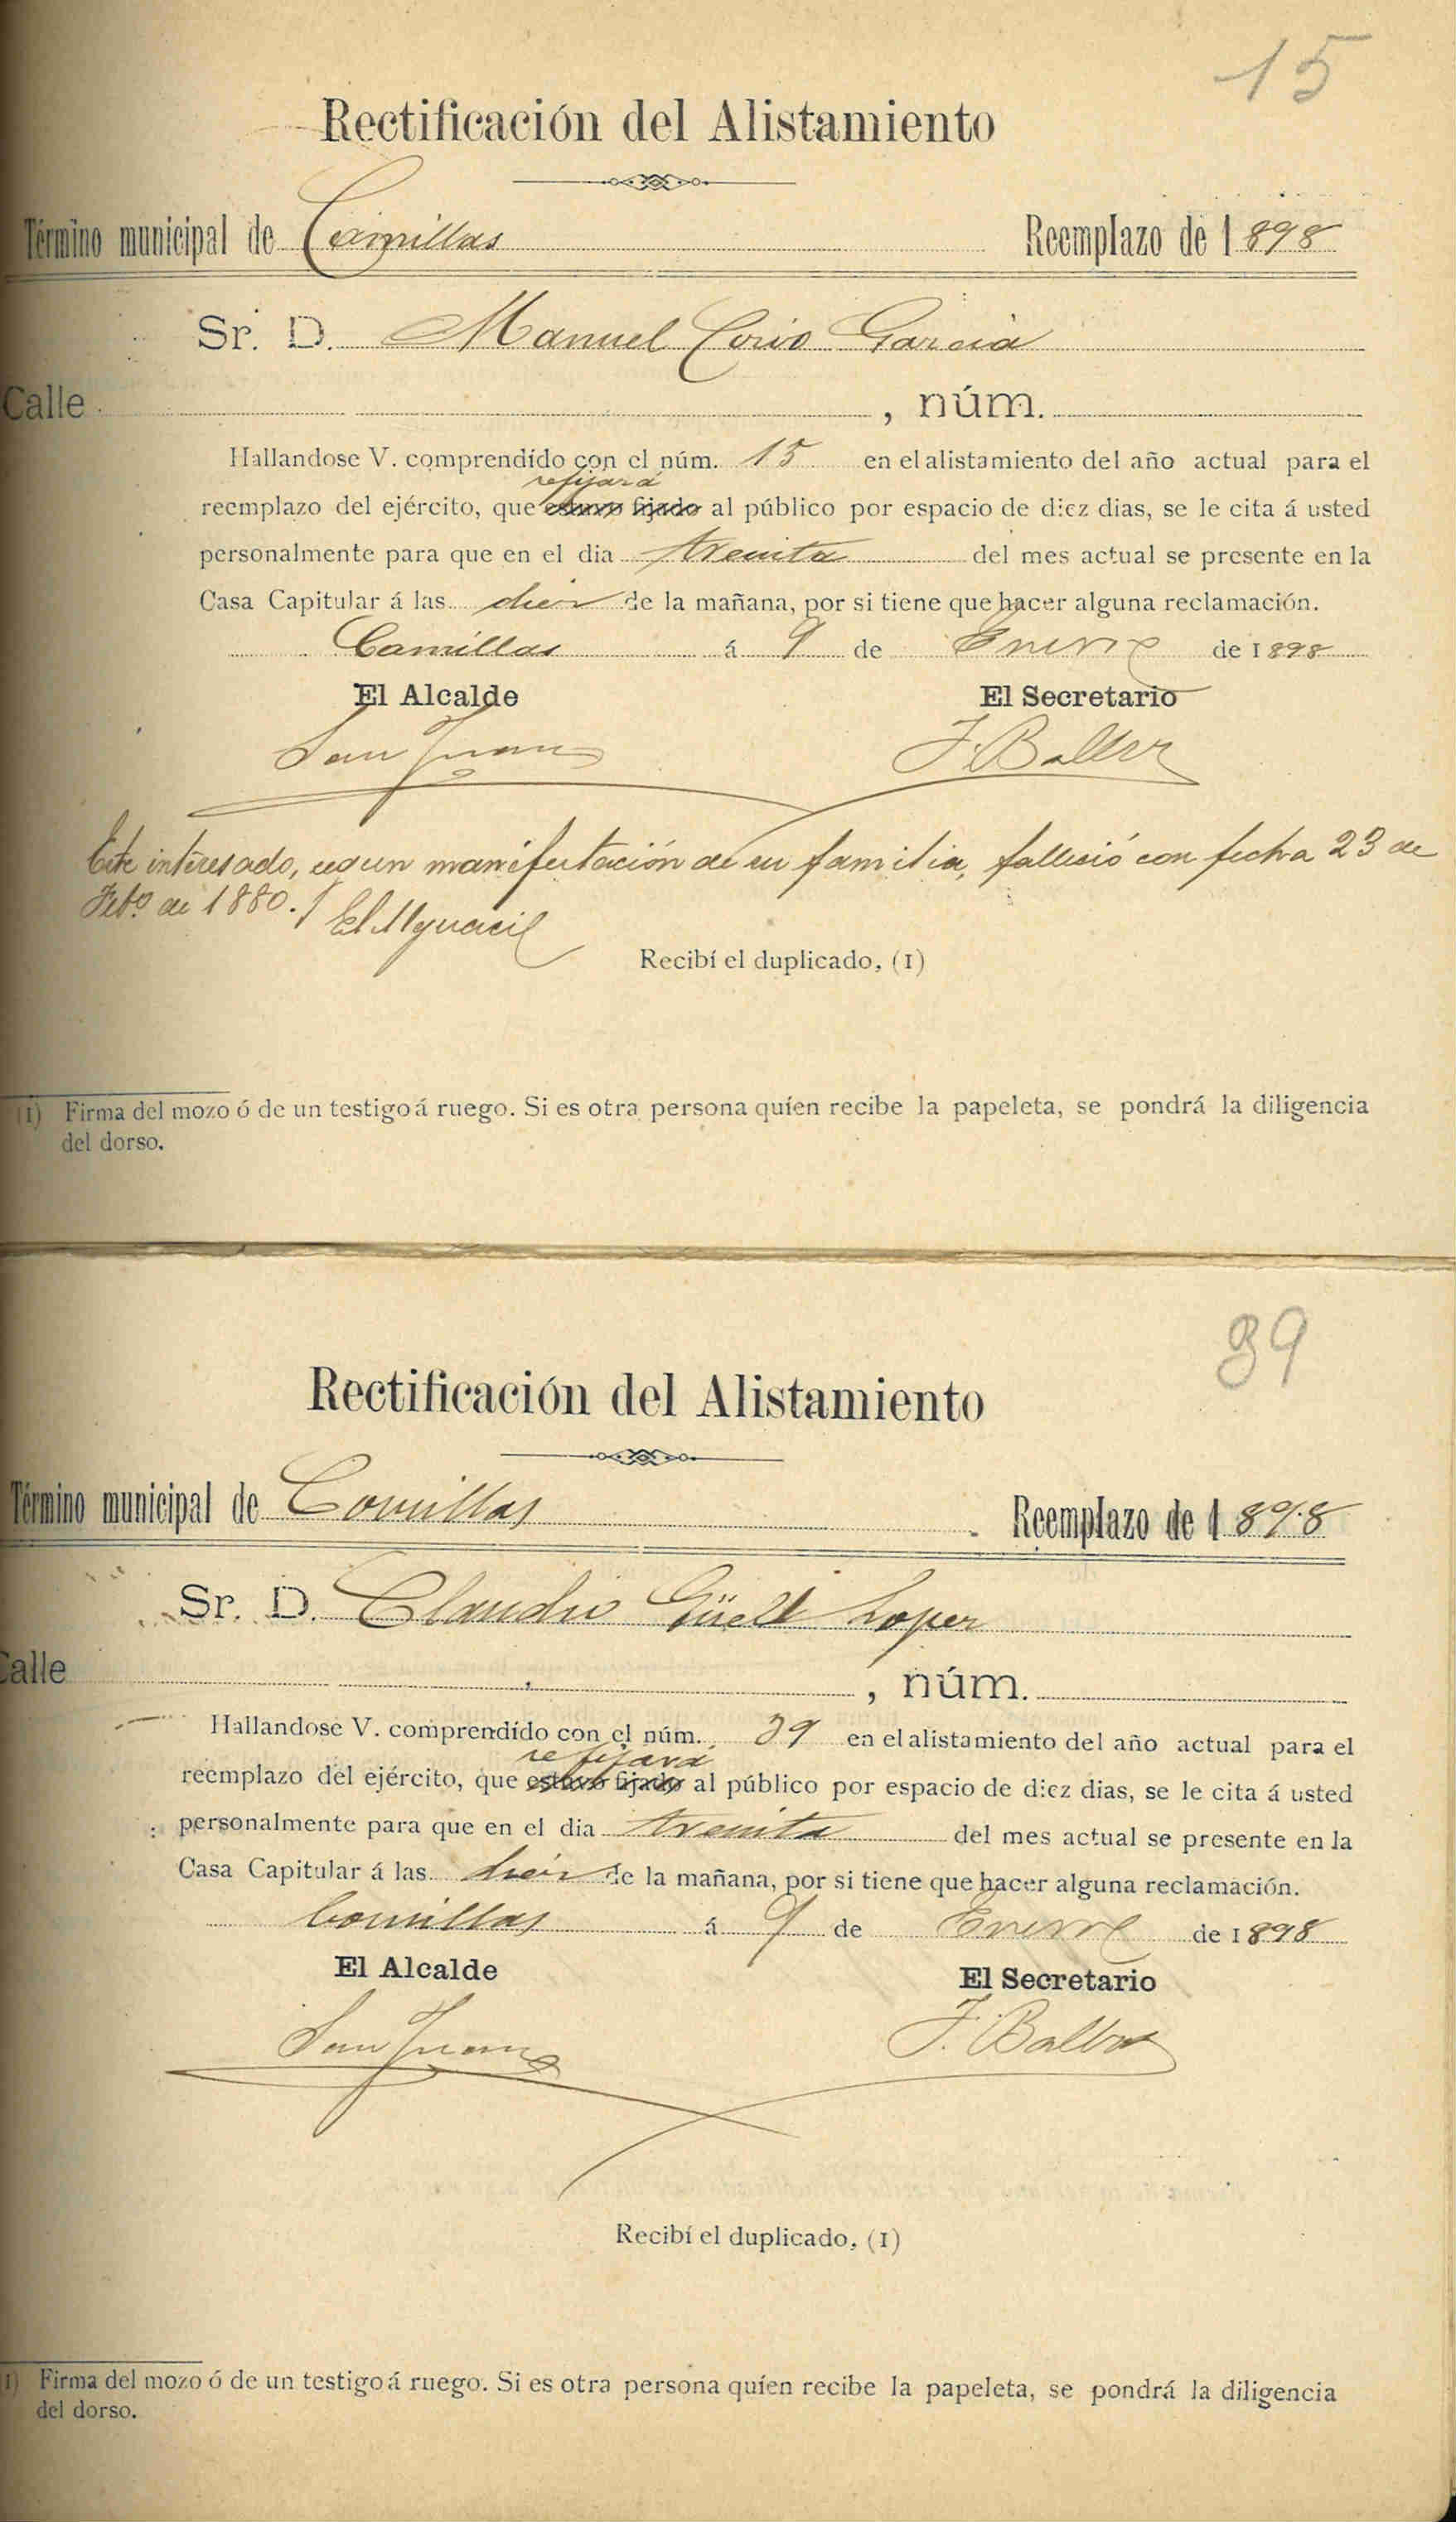 15
Rectificación del Alistamiento
Término municipal de Comillas Reemplazo de 1898
Sr. D. Manuel García
Calle , núm.
Hallandose V. comprendído con el núm. 15 en el alistamiento del año actual para el
se fijará
reemplazo del ejército, que estuvo fijado al público por espacio de diez dias, se le cita á usted
personalmente para que en el dia treinta del mes actual se presente en la
Casa Capitular á las diez de la mañana, por si tiene que hacer alguna reclamación.
Comillas á 9 de Enero de 1898
El Alcalde El Secretario
San Juan J. Balbas
Este interesado, segun manifestación de su familia, falleció con fecha 23 de
Feb.º de 1880. / El Alguacil
Recibí el duplicado, (1)
(1) Firma del mozo ó de un testigo á ruego. Si es otra persona quíen recibe la papeleta, se pondrá la diligencia
del dorso.
39
Rectificación del Alistamiento
Término municipal de Comillas Reemplazo de 1898
Sr. D. Claudio Güell Lopez
Calle , núm.
Hallandose V. comprendído con el núm. 39 en el alistamiento del año actual para el
se fijará
reemplazo del ejército, que estuvo fijado al público por espacio de diez dias, se le cita á usted
personalmente para que en el dia treinta del mes actual se presente en la
Casa Capitular á las diez de la mañana, por si tiene que hacer alguna reclamación.
Comillas á 9 de Enero de 1898
El Alcalde El Secretario
San Juan J. Balbas
Recibí el duplicado, (1)
(1) Firma del mozo ó de un testigo á ruego. Si es otra persona quíen recibe la papeleta, se pondrá la diligencia
del dorso.